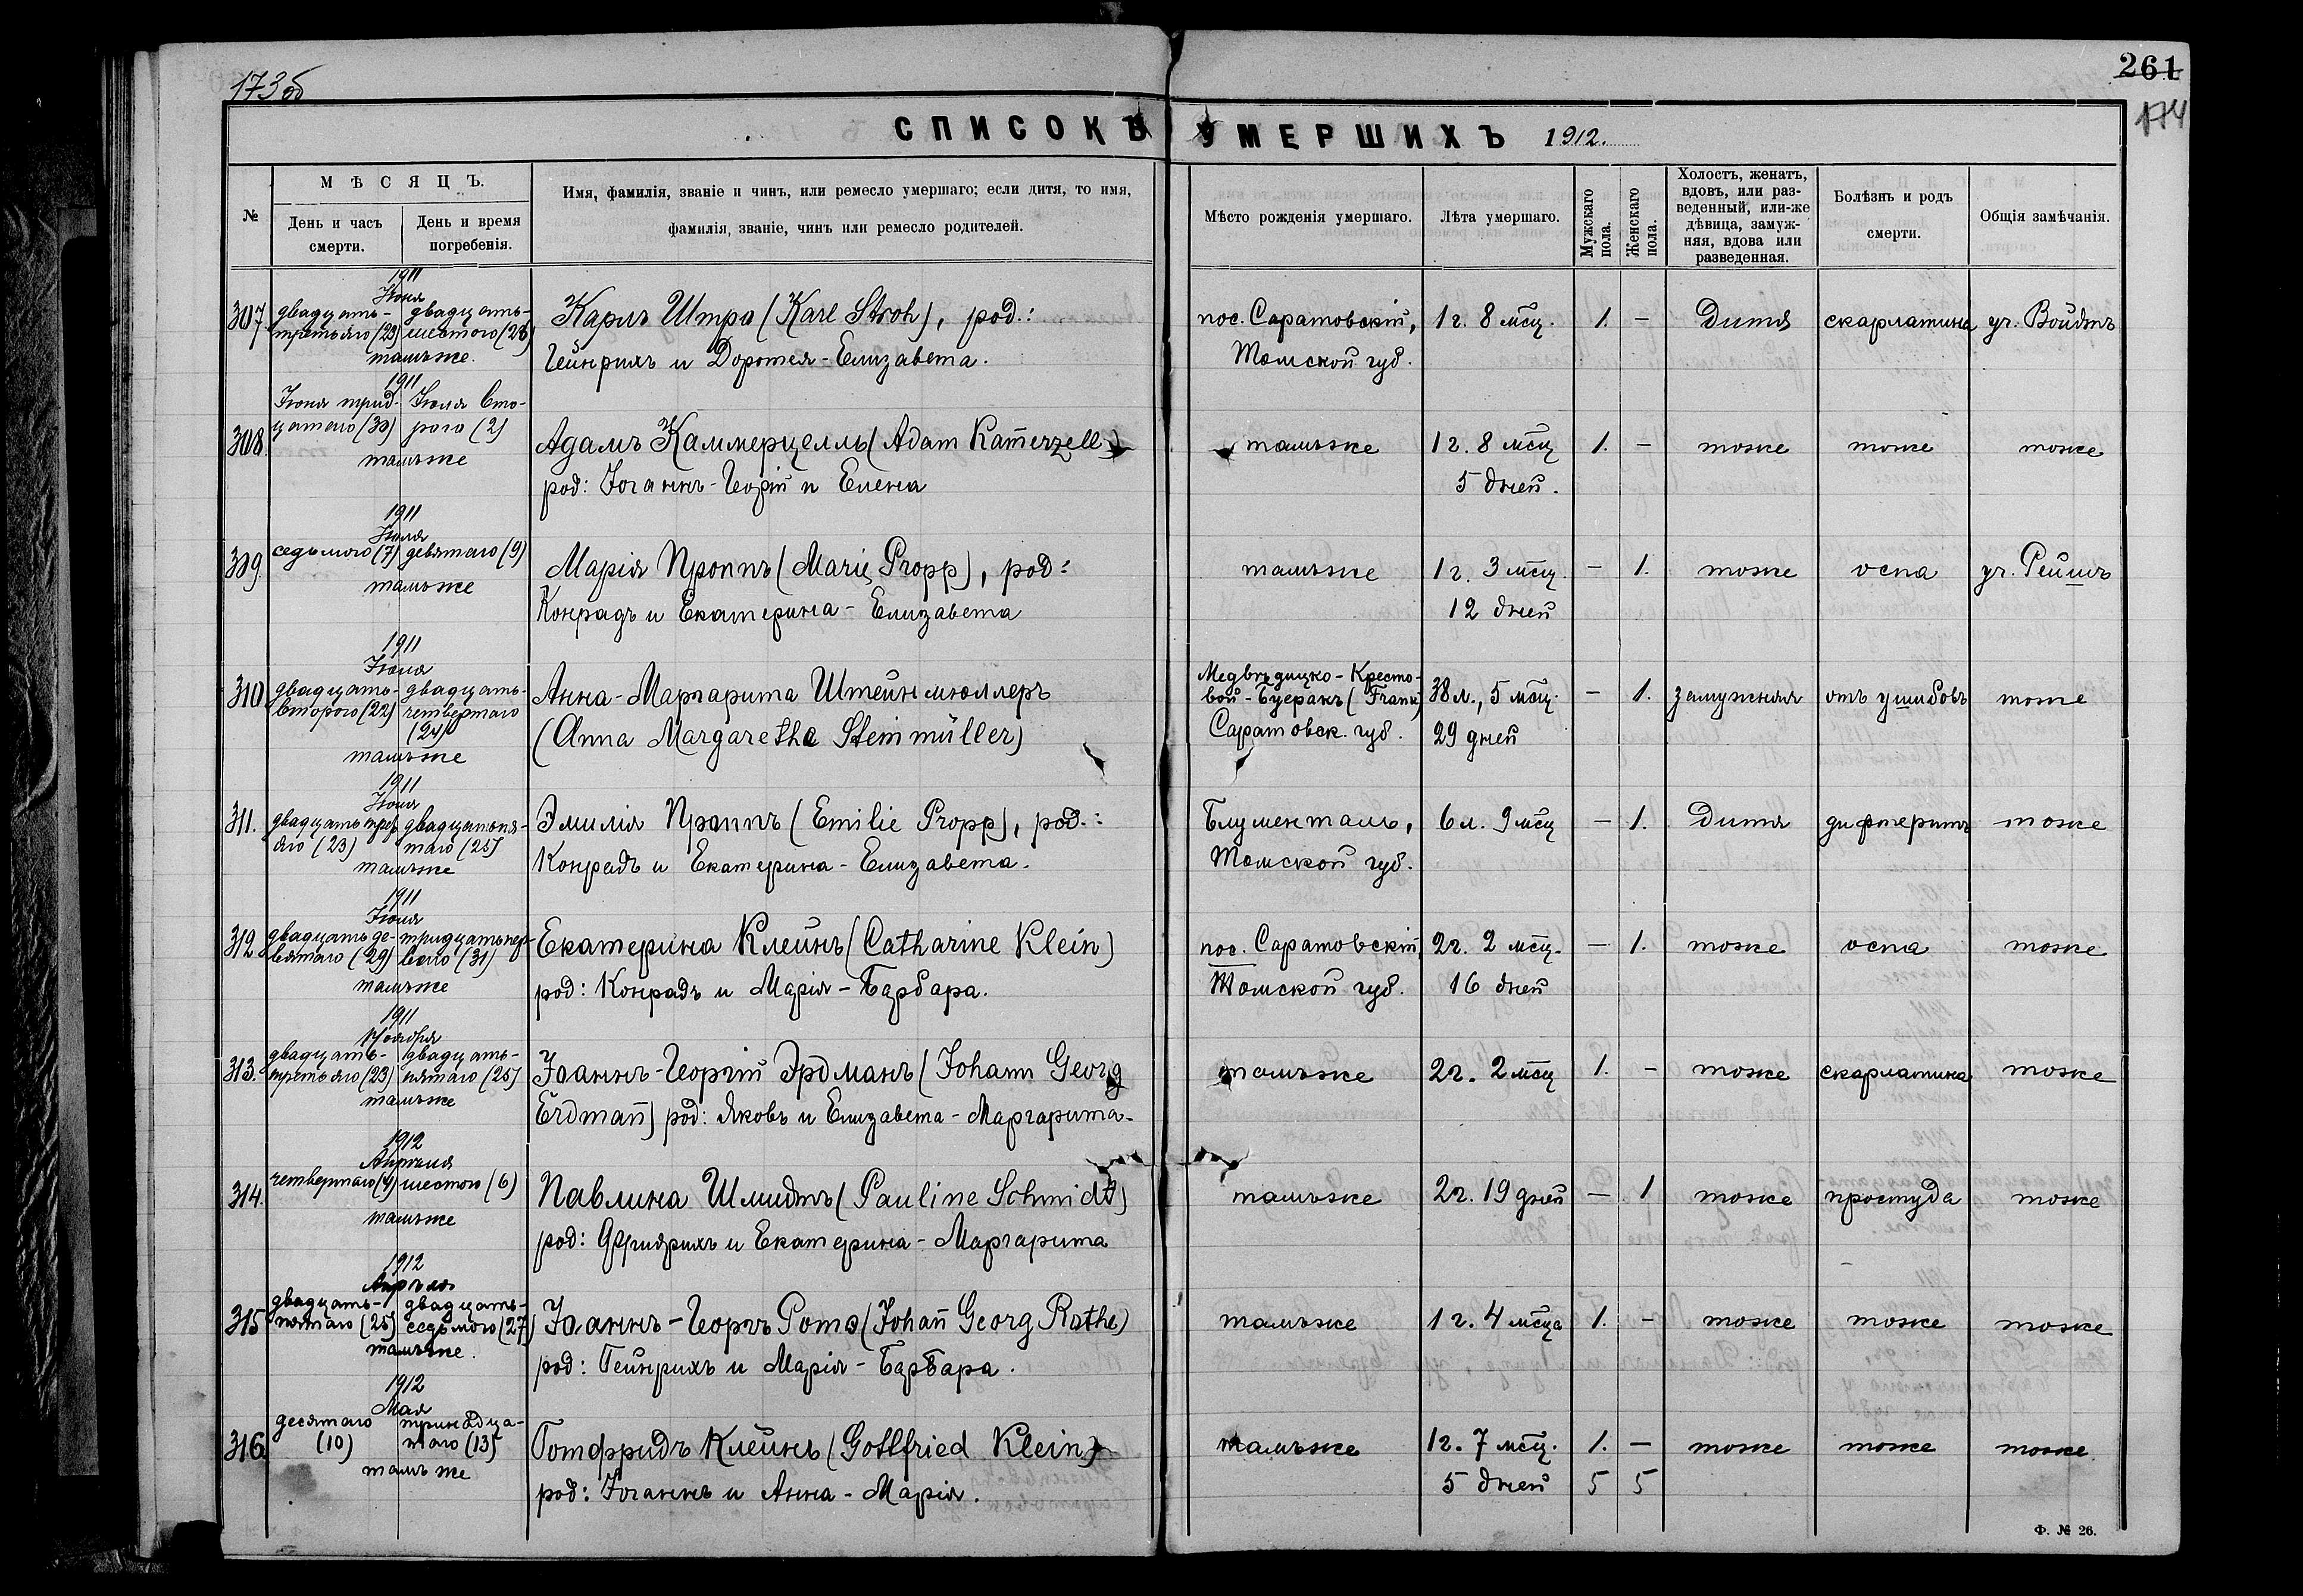 173 об
261
174
СПИСОКЪ УМЕРШИХЪ 1912.
№
МѢСЯЦЪ.
День и часъ смерти.
День и время погребенія.
Имя, фамилія, званіе и чинъ, или ремесло умершаго; если дитя, то имя,
фамилія, званіе, чинъ или ремесло родителей.
Мѣсто рожденія умершаго.
Лѣта умершаго.
Мужскаго пола.
Женскаго пола.
Холостъ, женатъ,
вдовъ, или раз-
веденный, или-же
дѣвица, замуж-
няя, вдова или
разведенная.
Болѣзнь и родъ
смерти.
Общія замѣчанія.
1911
Іюня
307. двадцать- двадцать- Карлъ Штро (Karl Stroh), род.: пос. Саратовскій, 1 г. 8 мсц. 1. — Дитя скарлатина уч. Войдтъ
третьяго (23) шестого (26) Гейнрихъ и Доротея-Елизавета. Томской губ.
тамъже.
1911
Іюня трид- Іюля вто-
308. цатаго (30) рого (2) Адамъ Каммерцелль (Adam Kam̄erzell) тамъже 1 г. 8 мсц 1. — тоже тоже тоже
тамъже род: Іоганнъ-Георгій и Елена 5 дней.
1911
Іюля
309. седьмого (7) девятаго (9) Марія Проппъ (Marie Propp), род: тамъже 1 г. 3 мсц. — 1. тоже оспа уч. Рейшъ
тамъже Конрадъ и Екатерина-Елизавета 12 дней
1911
Іюля
310. двадцать- двадцать- Анна-Маргарита Штейнмюллеръ Медвѣдицко-Кресто-
второго (22) четвертаго (24) вой-Буеракъ (Frank) 38 л., 5 мсц. — 1. замужняя отъ ушибовъ тоже
(Anna Margaretha Steinmüller) Саратовск. губ. 29 дней
тамъже
1911
Іюля
311. двадцать треть- двадцатопя- Эмилія Проппъ (Emilie Propp), род.: Блументаль, 6 л. 9 мсц — 1. Дитя дифтеритъ тоже
яго (23) таго (25) Конрадъ и Екатерина-Елизавета. Томской губ.
тамъже
1911
Іюля
312. двадцать де- тридцать пер- Екатерина Клейнъ (Catharine Klein) пос. Саратовскій, 2 г. 2 мсц. — 1. тоже оспа тоже
вятаго (29) ваго (31) род: Конрадъ и Марія-Барбара. Томской губ. 16 дней
тамъже
1911
Ноября
313. двадцать- двадцать- Іоаннъ-Георгій Эрдманъ (Johann Georg тамъже 2 г. 2 мсц 1. — тоже скарлатина тоже
третьяго (23) пятаго (25) Erdman̄) род: Яковъ и Елизавета-Маргарита.
тамъже
1912
Апрѣля
314. четвертаго (4) шестого (6) Павлина Шмидтъ (Pauline Schmidt) тамъже 2 г. 19 дней — 1 тоже простуда тоже
тамъже род: Фридрихъ и Екатерина-Маргарита
1912
Апрѣля
315. двадцать- двадцать- Іоаннъ-Георгъ Роте (Johan̄ Georg Rothe) тамъже 1 г. 4 мсца 1. — тоже тоже тоже
пятаго (25) седьмого (27) род: Гейнрихъ и Марія-Барбара.
тамъже.
1912
Мая
316. десятаго (10) тринадца- таго (13) Готфридъ Клейнъ (Gottfried Klein) тамъже 1 г. 7 мсц. 1. — тоже тоже тоже.
тамъже род: Іоганнъ и Анна-Марія. 5 дней 5 5
Ф. № 26.